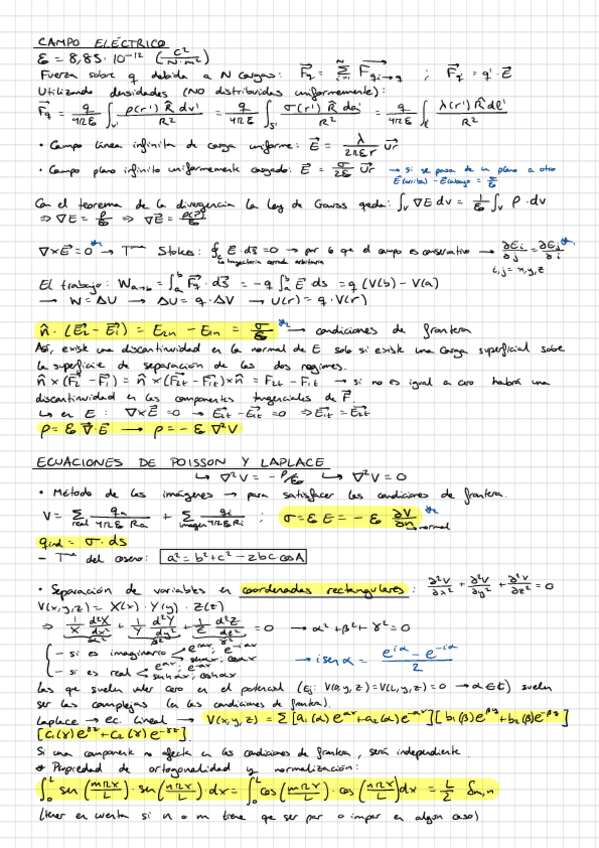 CAMPO ELÉCTRICO
ε = 8,85 · 10⁻¹² (C²/N·m²)
Fuerza sobre q debida a N cargas: F⃗q = Σ F⃗qi→q ; F⃗q' = q' · E⃗
Utilizando densidades (NO distribuidas uniformemente):
F⃗q = q/4πε ∫v' ρ(r') R̂ dv'/R² = q/4πε ∫s' σ(r') R̂ da'/R² = q/4πε ∫ λ(r') R̂ dl'/R²
• Campo línea infinita de carga uniforme: E⃗ = λ/2πεr u⃗r
• Campo plano infinito uniformemente cargado: E⃗ = σ/2ε u⃗r → si se pasa de un plano a otro
E(arriba) - E(abajo) = σ/ε
Con el teorema de la divergencia la Ley de Gauss queda: ∫v ∇E dv = 1/ε ∫v ρ · dv
⇒ ∇E = ρ/ε ⇒ ∇E⃗ = ρ(r⃗)/ε
∇×E⃗ = 0 → Tma Stokes: ∮ E⃗ · ds⃗ = 0 → por lo que el campo es conservativo → ∂Ei/∂j = ∂Ej/∂i
↳ trayectoria cerrada arbitraria
i,j = x,y,z
El trabajo: Wa→b = ∫a^b F⃗q · ds⃗ = -q ∫a^b E⃗ ds = q (V(b) - V(a)
→ W = ΔU → ΔU = q · ΔV → U(r) = q · V(r)
n̂ · (E⃗2 - E⃗1) = E2n - E1n = σ/ε → condiciones de frontera
Así, existe una discontinuidad en la normal de E solo si existe una carga superficial sobre
la superficie de separación de las dos regiones.
n̂ × (F⃗2 - F⃗1) = n̂ × (F⃗2t - F⃗1t) × n̂ = F2t - F1t → si no es igual a cero habrá una
discontinuidad en las componentes tangenciales de F⃗.
↳ en E : ∇×E⃗ = 0 → E⃗2t - E⃗1t = 0 ⇒ E⃗1t = E⃗2t
ρ = ε ∇⃗ · E⃗ → ρ = - ε ∇²V
ECUACIONES DE POISSON Y LAPLACE
↳ ∇²V = -ρ/ε ↳ ∇²V = 0
• Método de las imágenes → para satisfacer las condiciones de frontera.
V = Σreal qn/4πε Rn + Σimagen qi/4πε Ri ; σ = ε E = - ε ∂V/∂n
↳ normal
qind = σ · ds
- Tma del coseno: a² = b² + c² - 2bc cosA
• Separación de variables en coordenadas rectangulares : ∂²V/∂x² + ∂²V/∂y² + ∂²V/∂z² = 0
V(x,y,z) = X(x) · Y(y) · Z(z)
⇒ 1/X d²X/dx² + 1/Y d²Y/dy² + 1/Z d²Z/dz² = 0 → α² + β² + γ² = 0
α² β² γ²
- si es imaginario < e^iαx, e^-iαx / senαx, cosαx
→ i senα = (e^iα - e^-iα)/2
- si es real < e^αx, e^-αx / senhαx, coshαx
Las que suelen valer cero en el potencial (Ej: V(0,y,z) = V(L,y,z) = 0 → α∈ℂ) suelen
ser las complejas (en las condiciones de frontera).
Laplace → ec. lineal → V(x,y,z) = Σ [a1(α) e^αx + a2(α) e^-αx] [b1(β) e^βy + b2(β) e^-βy]
[c1(γ) e^γz + c2(γ) e^-γz]
Si una componente no afecta en las condiciones de frontera, será independiente.
* Propiedad de ortogonalidad y normalización:
∫0^L sen (mπx/L) · sen (nπx/L) dx = ∫0^L cos (mπx/L) · cos (nπx/L) dx = L/2 δm,n
(tener en cuenta si n o m tiene que ser par o impar en algún caso)